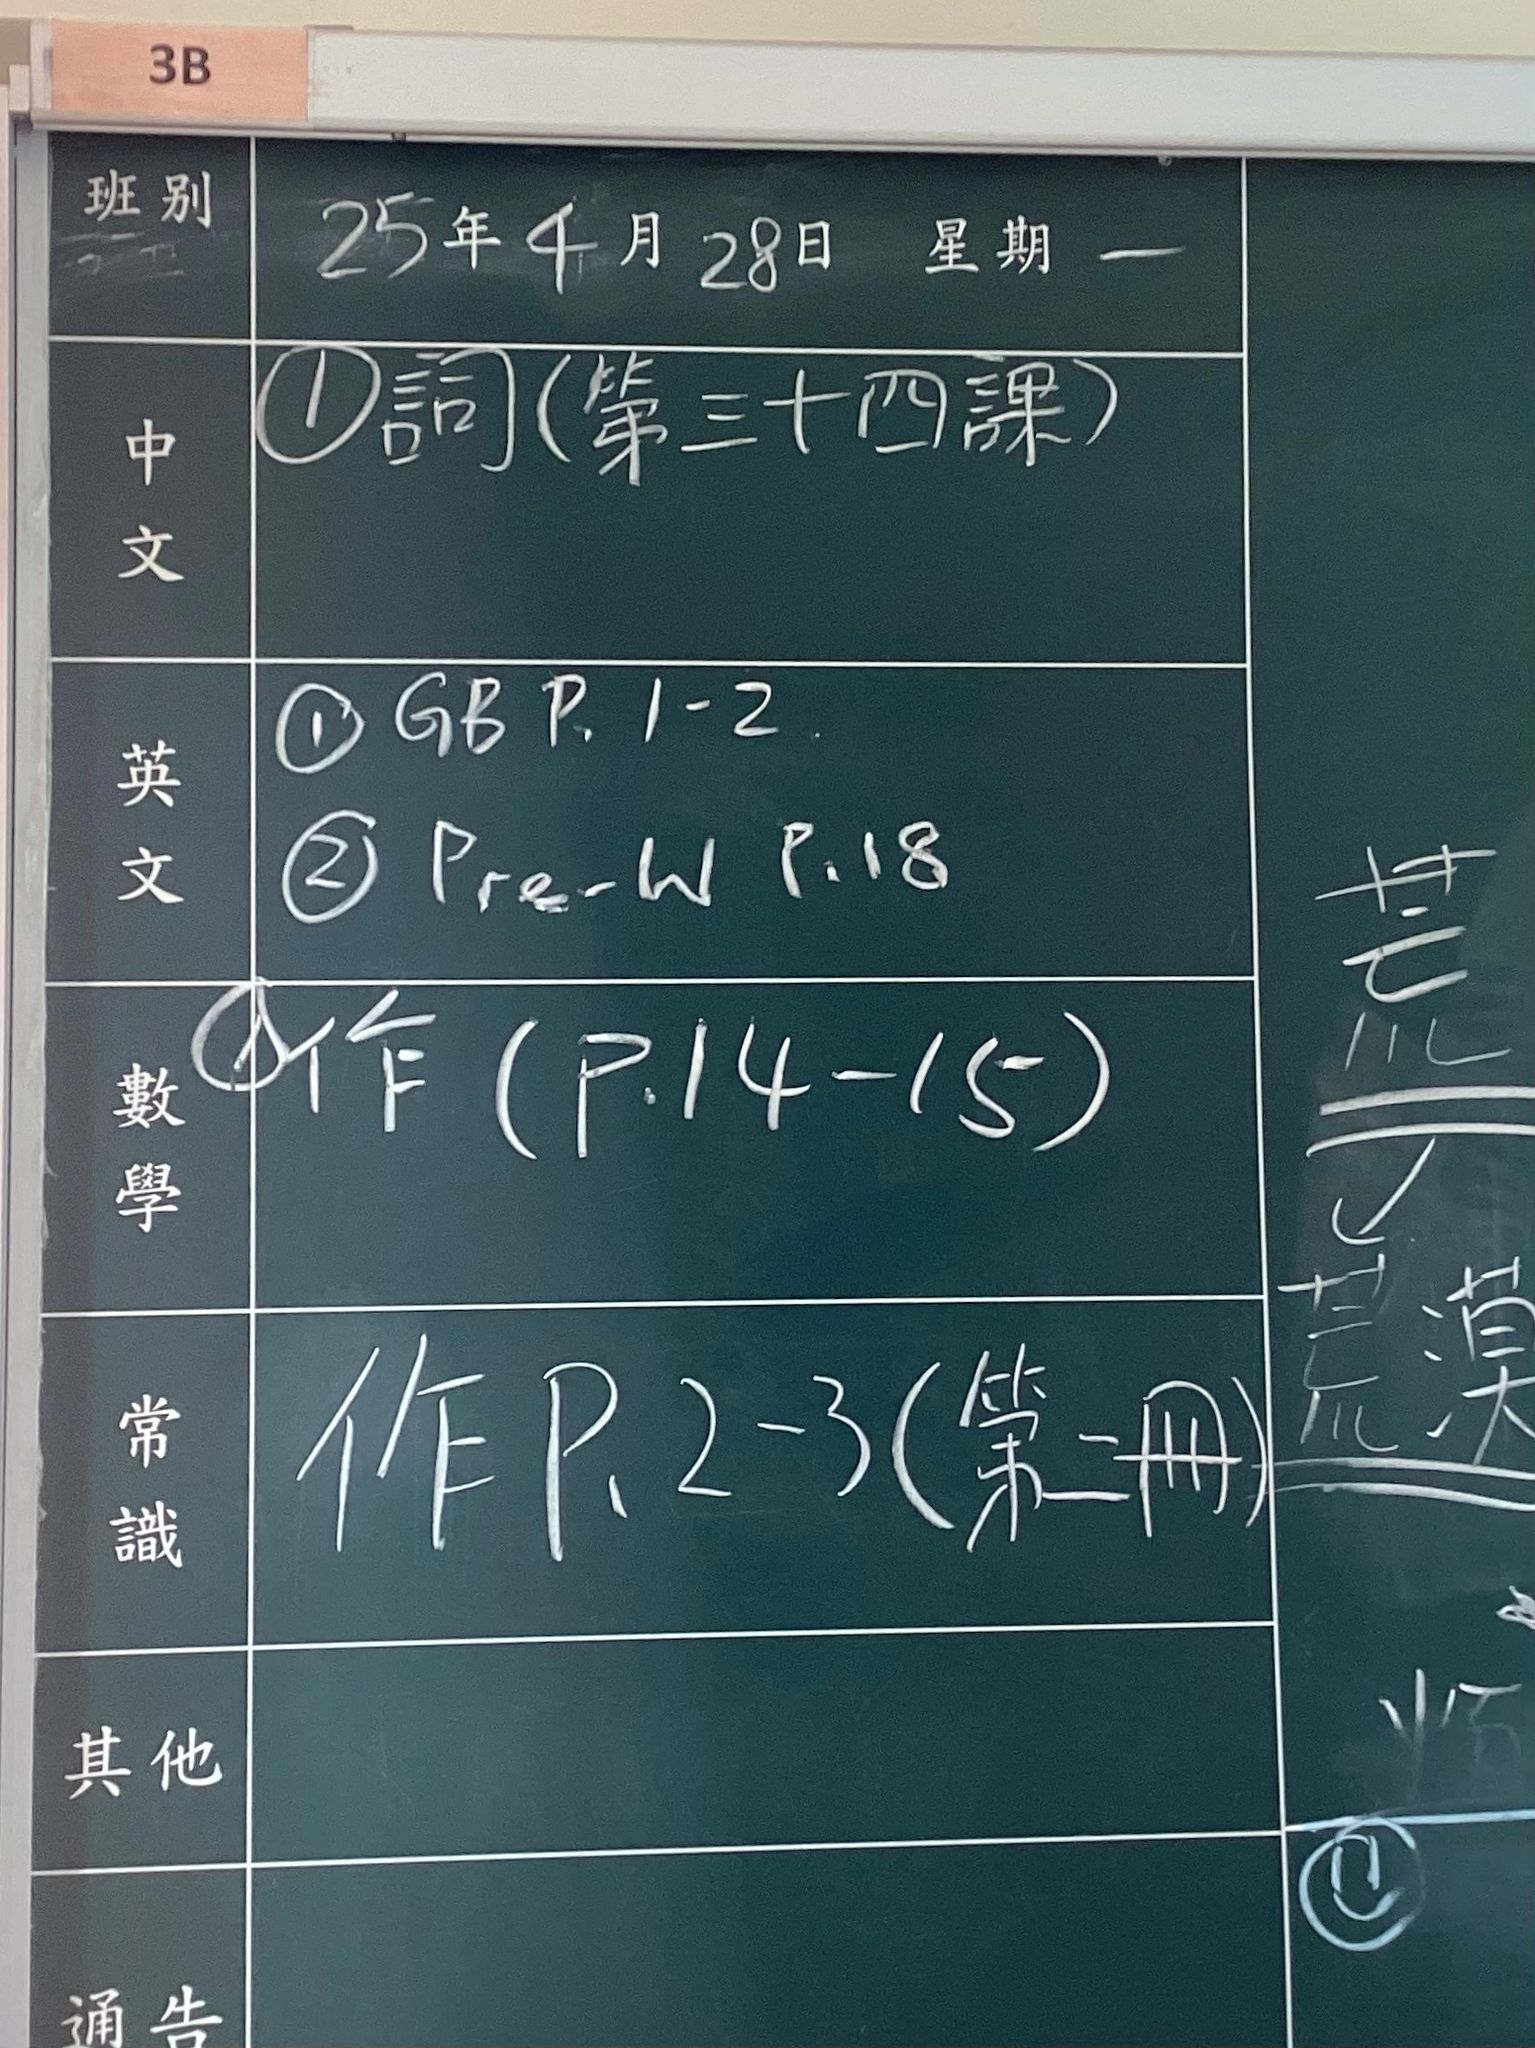 3B
班別 25年4月28日 星期一
中文 ①詞(第三十四課)
英文 ①GB P. 1-2
②Pre-W P.18
數學 ①作 (P.14-15)
常識 作 P. 2-3(第二冊)
其他
通告
荒
荒漠